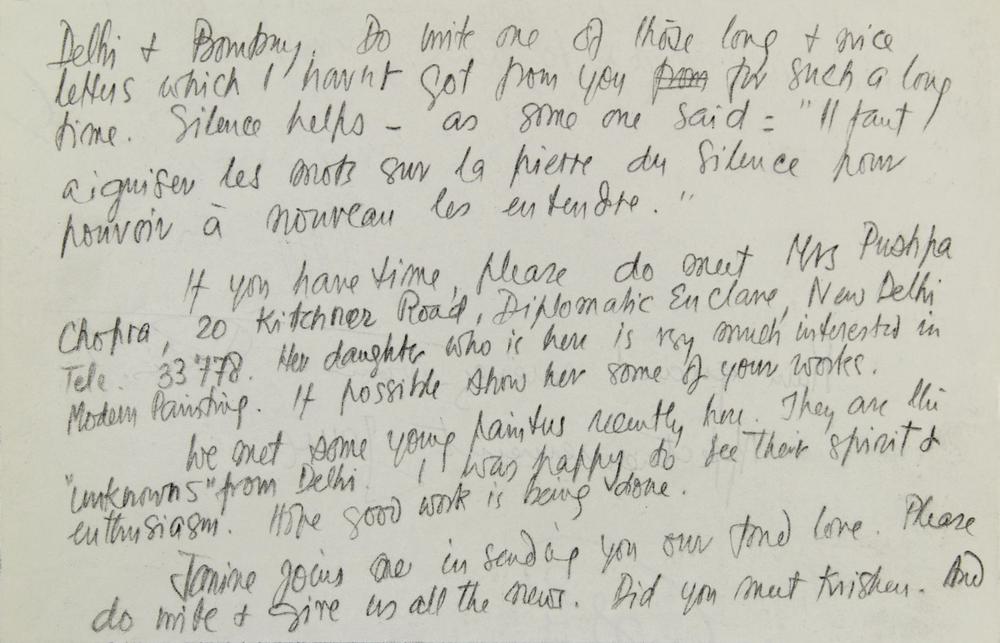 Delhi & Bombay. Do write one of those long & nice
letters which I havnt got from you from for such a long
time. Silence helps – as some one said = "Il faut
aiguiser les mots sur la pierre du silence pour
pouvoir à nouveau les entendre."
If you have time, please do meet Mrs Pushpa
Chopra, 20 Kitchner Road, Diplomatic Enclave, New Delhi
Tele. 33778. Her daughter who is here is very much interested in
Modern Painting. If possible show her some of your works.
We met some young painters recently here. They are the
"unknowns" from Delhi. I was happy to see their spirit &
enthusiasm. Hope good work is being done.
Janine joins me in sending you our fond love. Please
do write & give us all the news. Did you meet Krishen. And